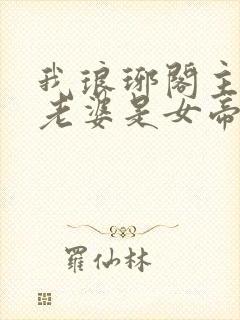 我琅琊閣主
老婆是女帝
羅仙林